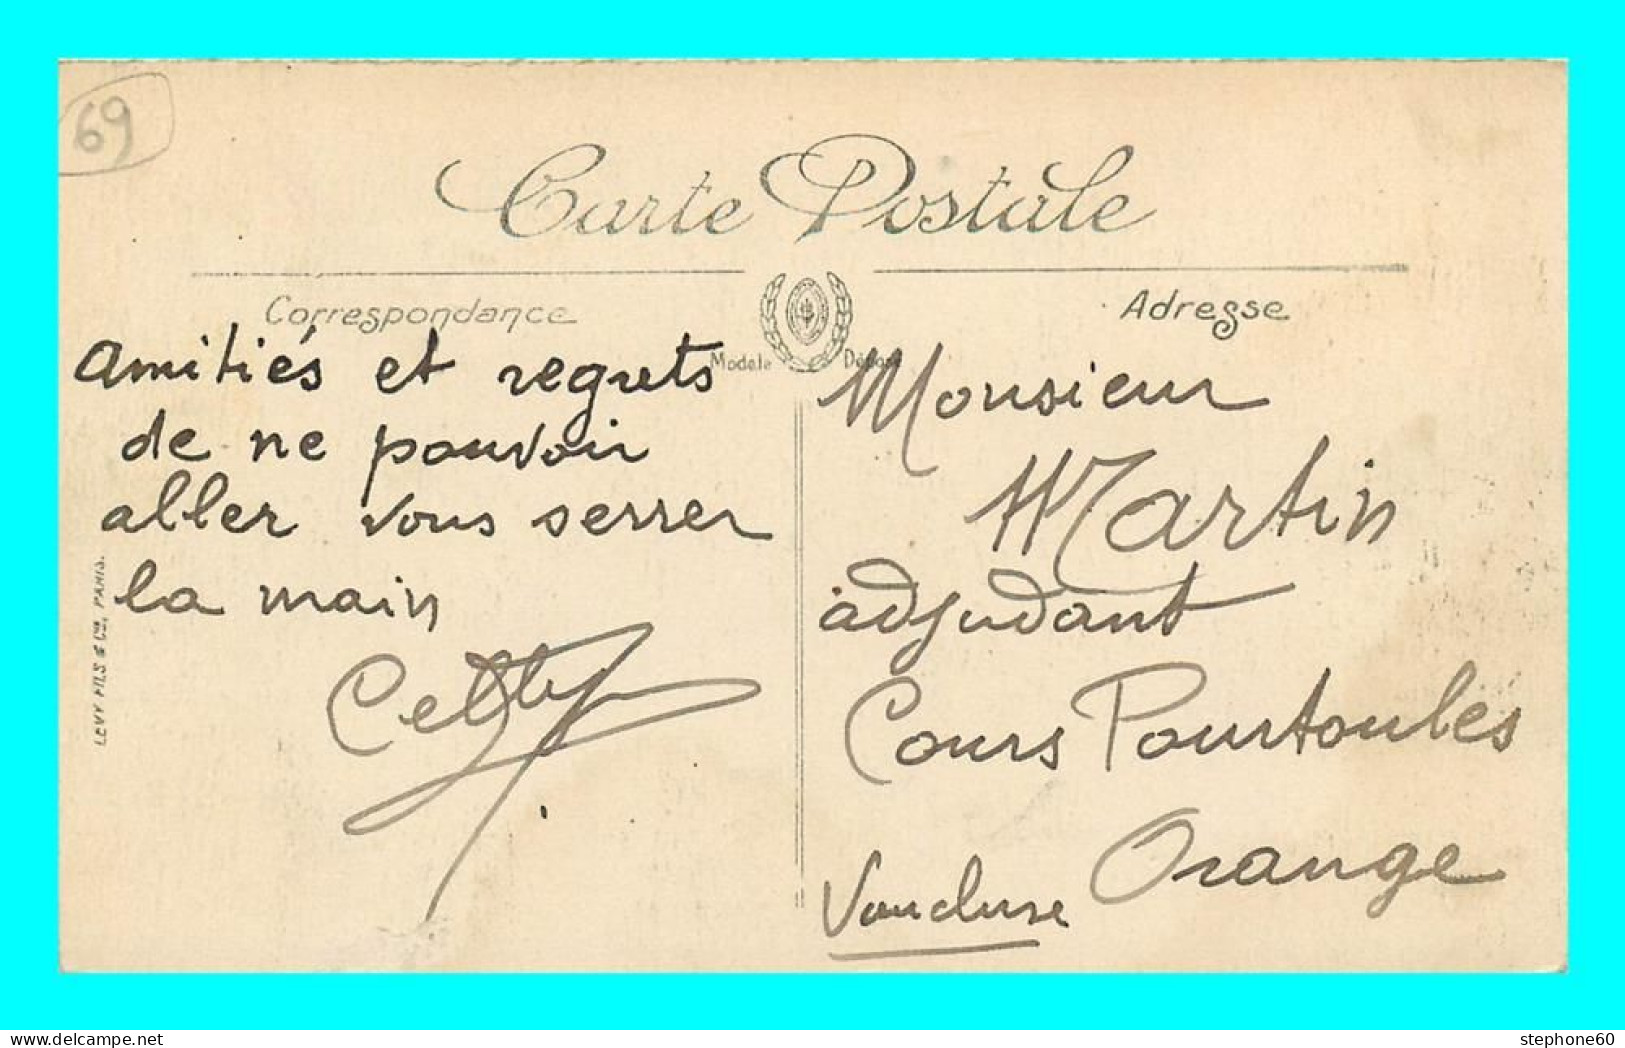 69
Carte Postale
Correspondance
Adresse
Modèle Déposé
amitiés et regrets
de ne pouvoir
aller vous serrer
la main
Monsieur
Martin
adjudant
Cours Pourtoules
Orange
Vaucluse
LEVY FILS & Cie, PARIS.
stephone60